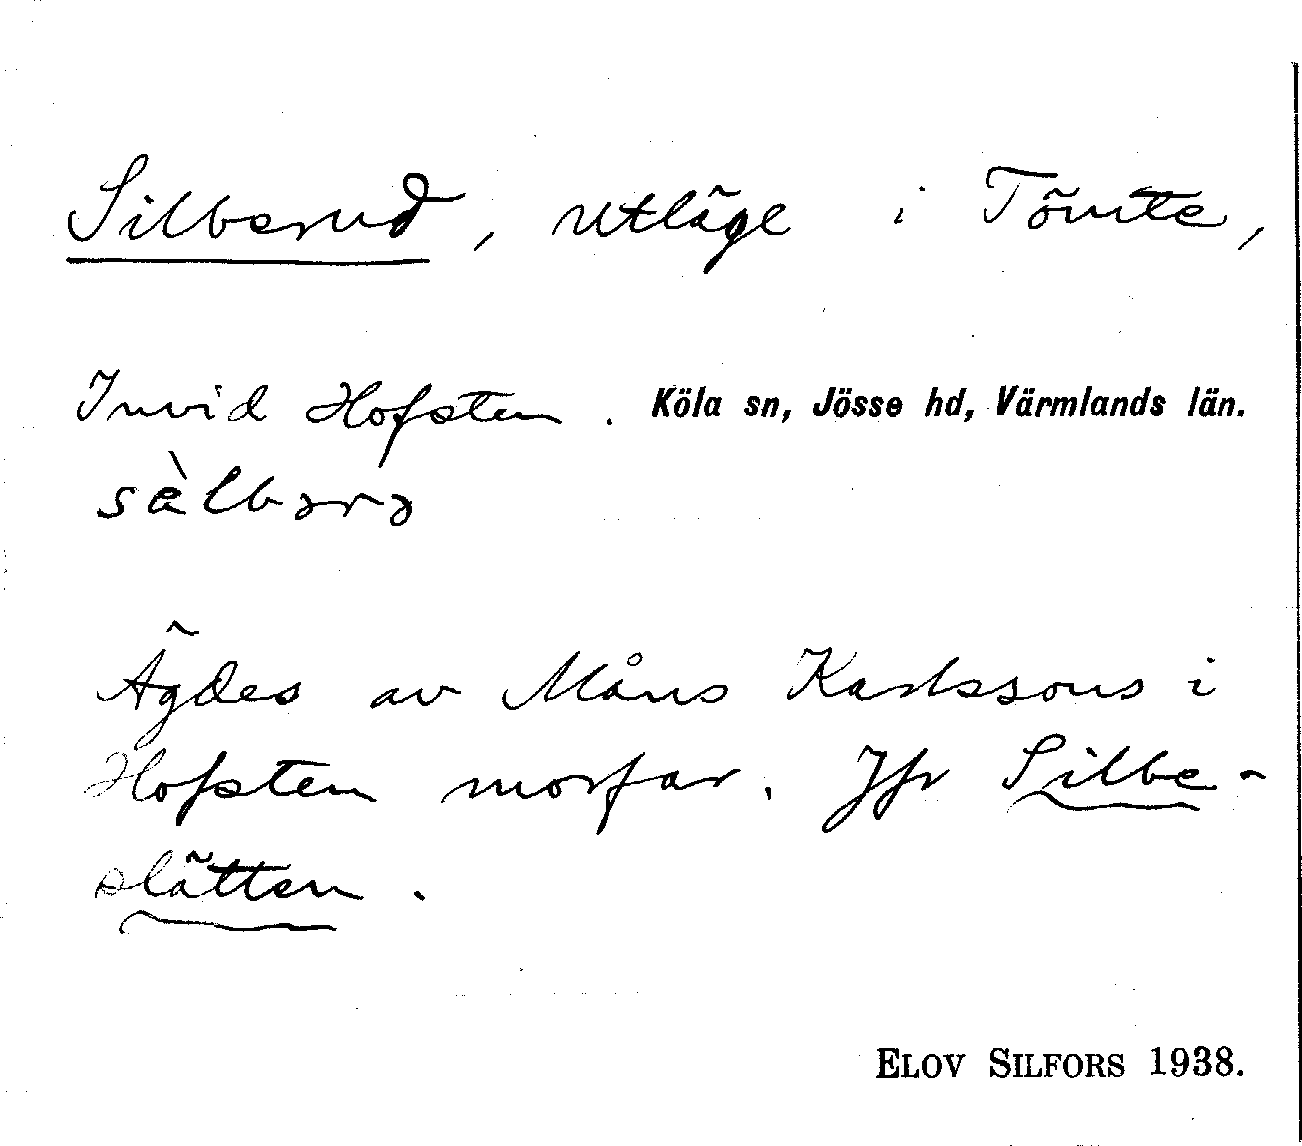 Silberud, utläge i Tömte,
Invid Hofsten. Köla sn, Jösse hd, Värmlands län.
sèlbərə
Ägdes av Måns Karlssons i
Hofsten morfar. Jfr Silbe-
slätten.
ELOV SILFORS 1938.